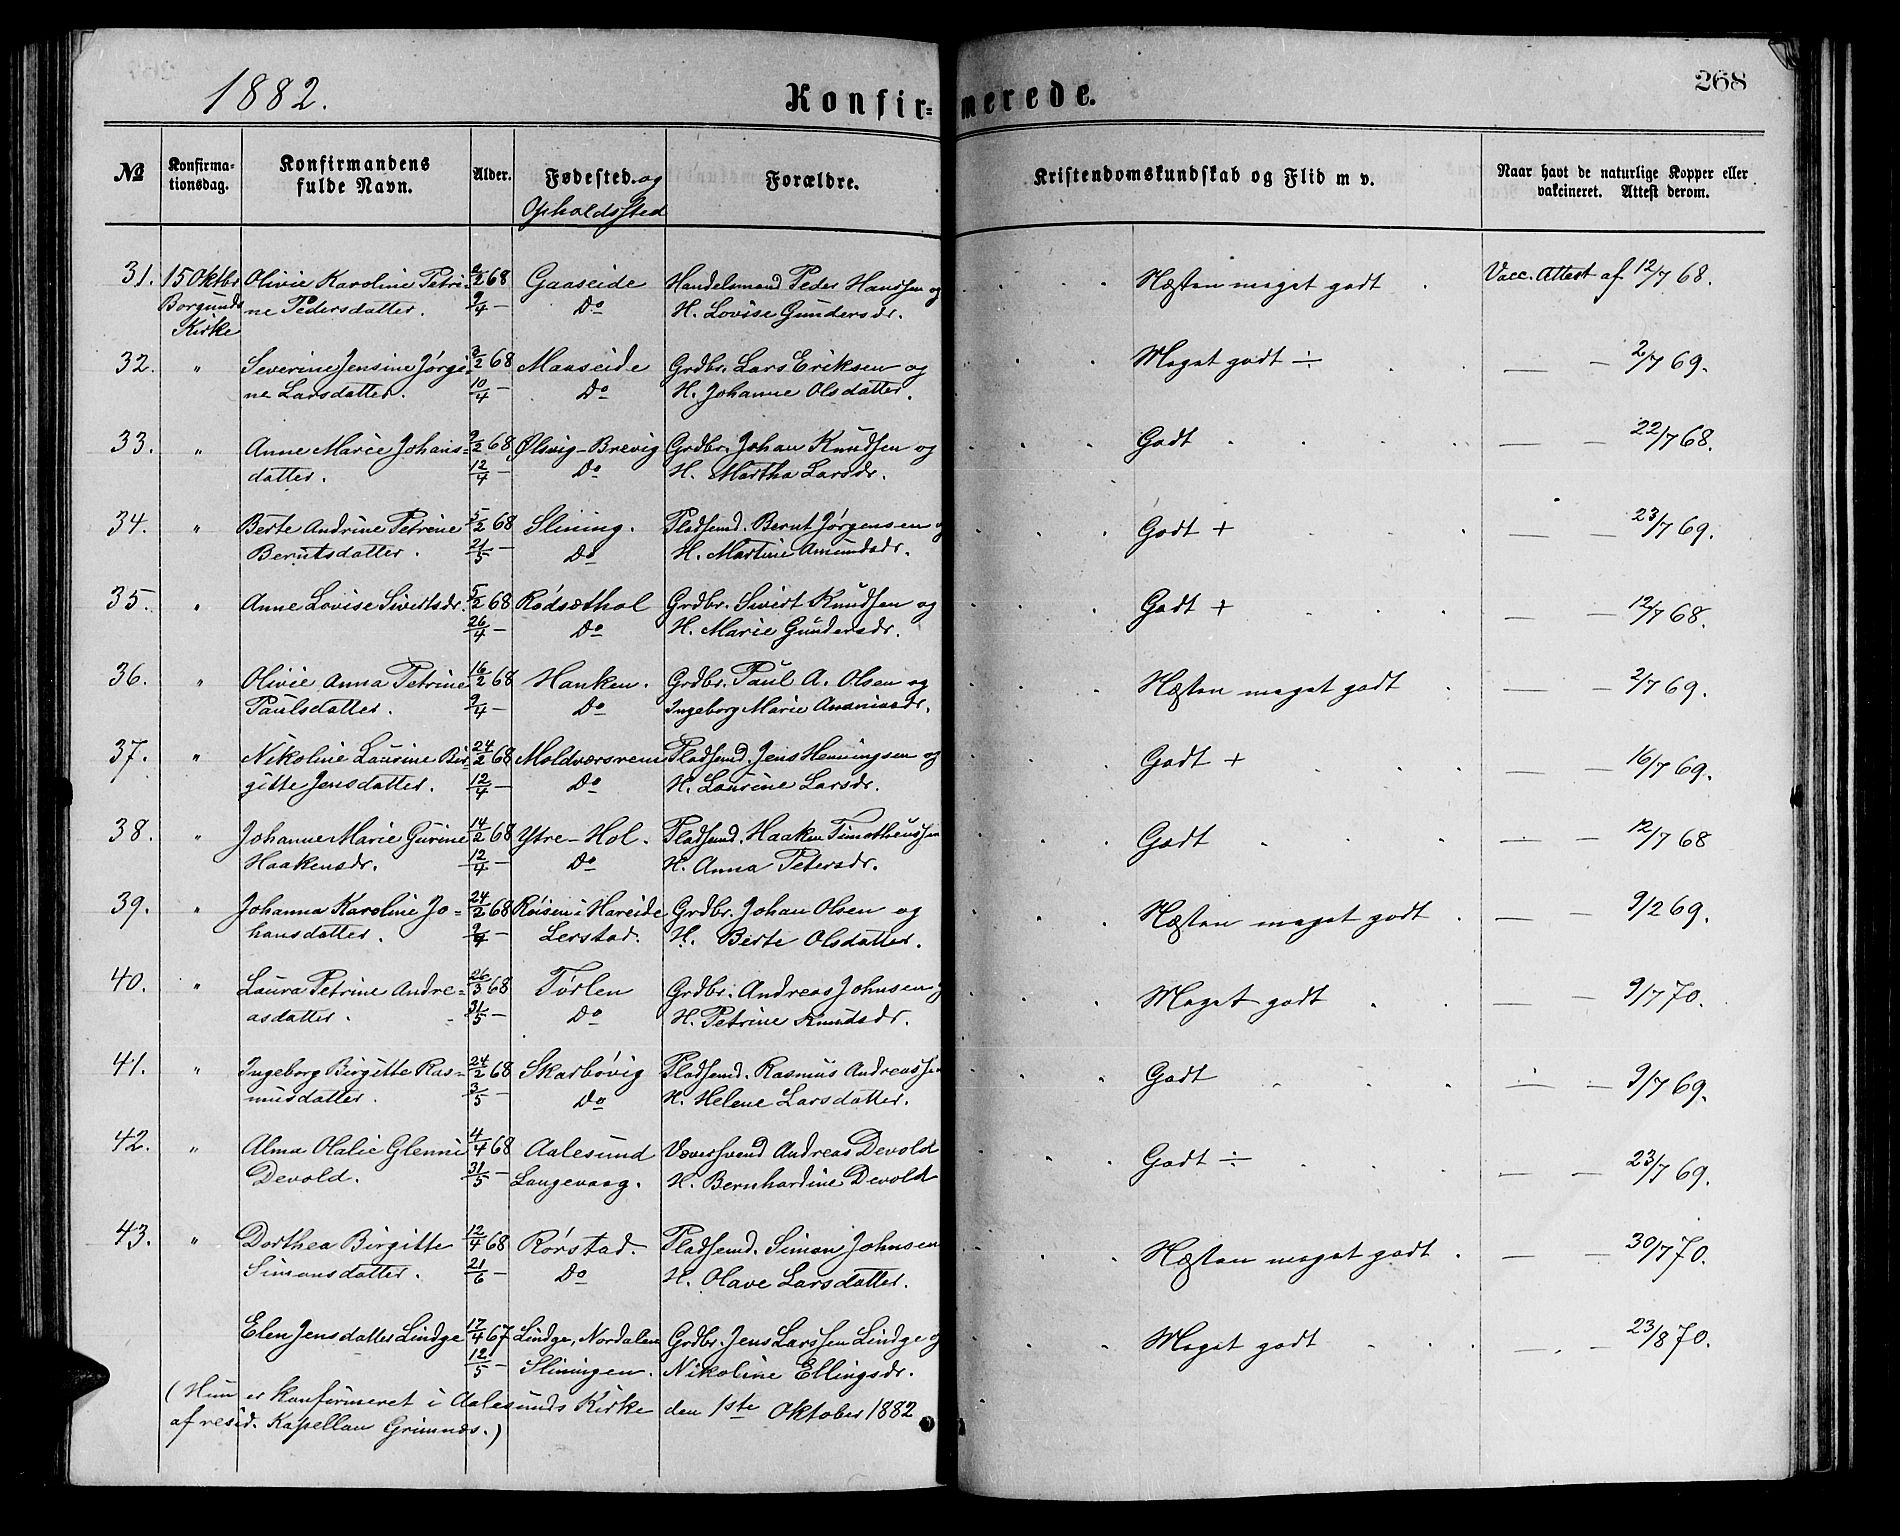 1882. Konfirmerede. 268
№ Konfirmationsdag. Konfirmandens fulde Navn. Alder. Fødested og Opholdssted Forældre. Kristendomskundskab og Flid m v. Naar havt de naturlige Kopper eller vakcineret. Attest derom.
31. 15 Oktbr Olivie Karoline Petri- 2/2 68 Gaaseide Handelsmand Peder Hanssen og Næsten meget godt Vacc. Attest af 12/7 68.
Borgunds Kirke ne Pedersdatter. 9/4 — Do H. Lovise Gundersdr.
32. " Severine Jensine Jørgi- 3/2 68 Maaseide Grdbr. Lars Eriksen og Meget godt ÷ — — 2/7 69.
ne Larsdatter. 10/4 — Do H. Johanne Olsdatter.
33. " Anne Marie Johans- 9/2 68 Ølsvig-Brevig Grdbr. Johan Knudsen og Godt — — 22/7 68.
datter. 12/4 — Do H. Martha Larsdr.
34. " Berte Andrine Petrine 5/2 68 Slining. Pladsemd. Bernt Jørgensen og Godt + — — 23/7 69.
Berntsdatter. 21/5 — Do H. Martine Amundsdr.
35. " Anne Lovise Sivertsdr. 5/2 68 Rødsæthol Grdbr. Sivert Knudsen og Godt + — — 12/7 68.
26/4 — Do H. Marie Gundersdr.
36. " Olivie Anna Petrine 16/2 68 Hanken. Grdbr. Paul A. Olsen og Næsten meget godt — — 2/7 69.
Paulsdatter. 9/4 — Do Ingeborg Marie Ananiasdr.
37. " Nikoline Laurine Bir- 24/2 68 Moldværsvem Pladsemd. Jens Henningsen og Godt + — — 16/7 69.
gitte Jensdatter. 12/4 — Do H. Laurine Larsdr.
38. " Johanne Marie Gurine 14/2 68 Ytre-Hol. Pladsemd. Haaken Timotheussen Godt — — 12/7 68
Haakensdr. 12/4 — Do H. Anna Petersdr.
39. " Johanna Karoline Jo- 24/2 68 Røisen i Hareide Grdbr. Johan Olsen og Næsten meget godt — — 9/2 69.
hansdatter. 9/4 — Lerstad. H. Berte Olsdatter.
40. " Laura Petrine Andre- 26/3 68 Tørlen Grdbr. Andreas Johnsen og Meget godt — — 9/7 70.
asdatter. 31/5 — Do H. Petrine Knudsdr.
41. " Ingeborg Birgitte Ras- 24/2 68 Skarbøvig Pladsemd. Rasmus Andreassen Godt — — 9/7 69.
musdatter. 3/5 — Do H. Helene Larsdatter.
42. " Alma Olalie Glenni 4/4 68 Aalesund Væversvend Andreas Devold Godt ÷ — — 23/7 69.
Devold. 31/5 — Langevaag. H. Bernhardine Devold
43. " Dorthea Birgitte 12/4 68 Rørstad. Pladsemd. Simon Johnsen Næsten meget godt — — 30/7 70.
Simonsdatter. 21/6 — Do H. Olave Larsdatter.
Elen Jensdatter Lindge 17/4 67 Lindge, Nordalen Grdbr. Jens Larssen Lindge og Meget godt — — 23/8 70.
12/5 — Sliningen. Nikoline Ellingsdr.
(Hun er konfirmeret i Aalesunds Kirke den 1ste Oktober 1882
af resid. Kapellan Grimnæs.)